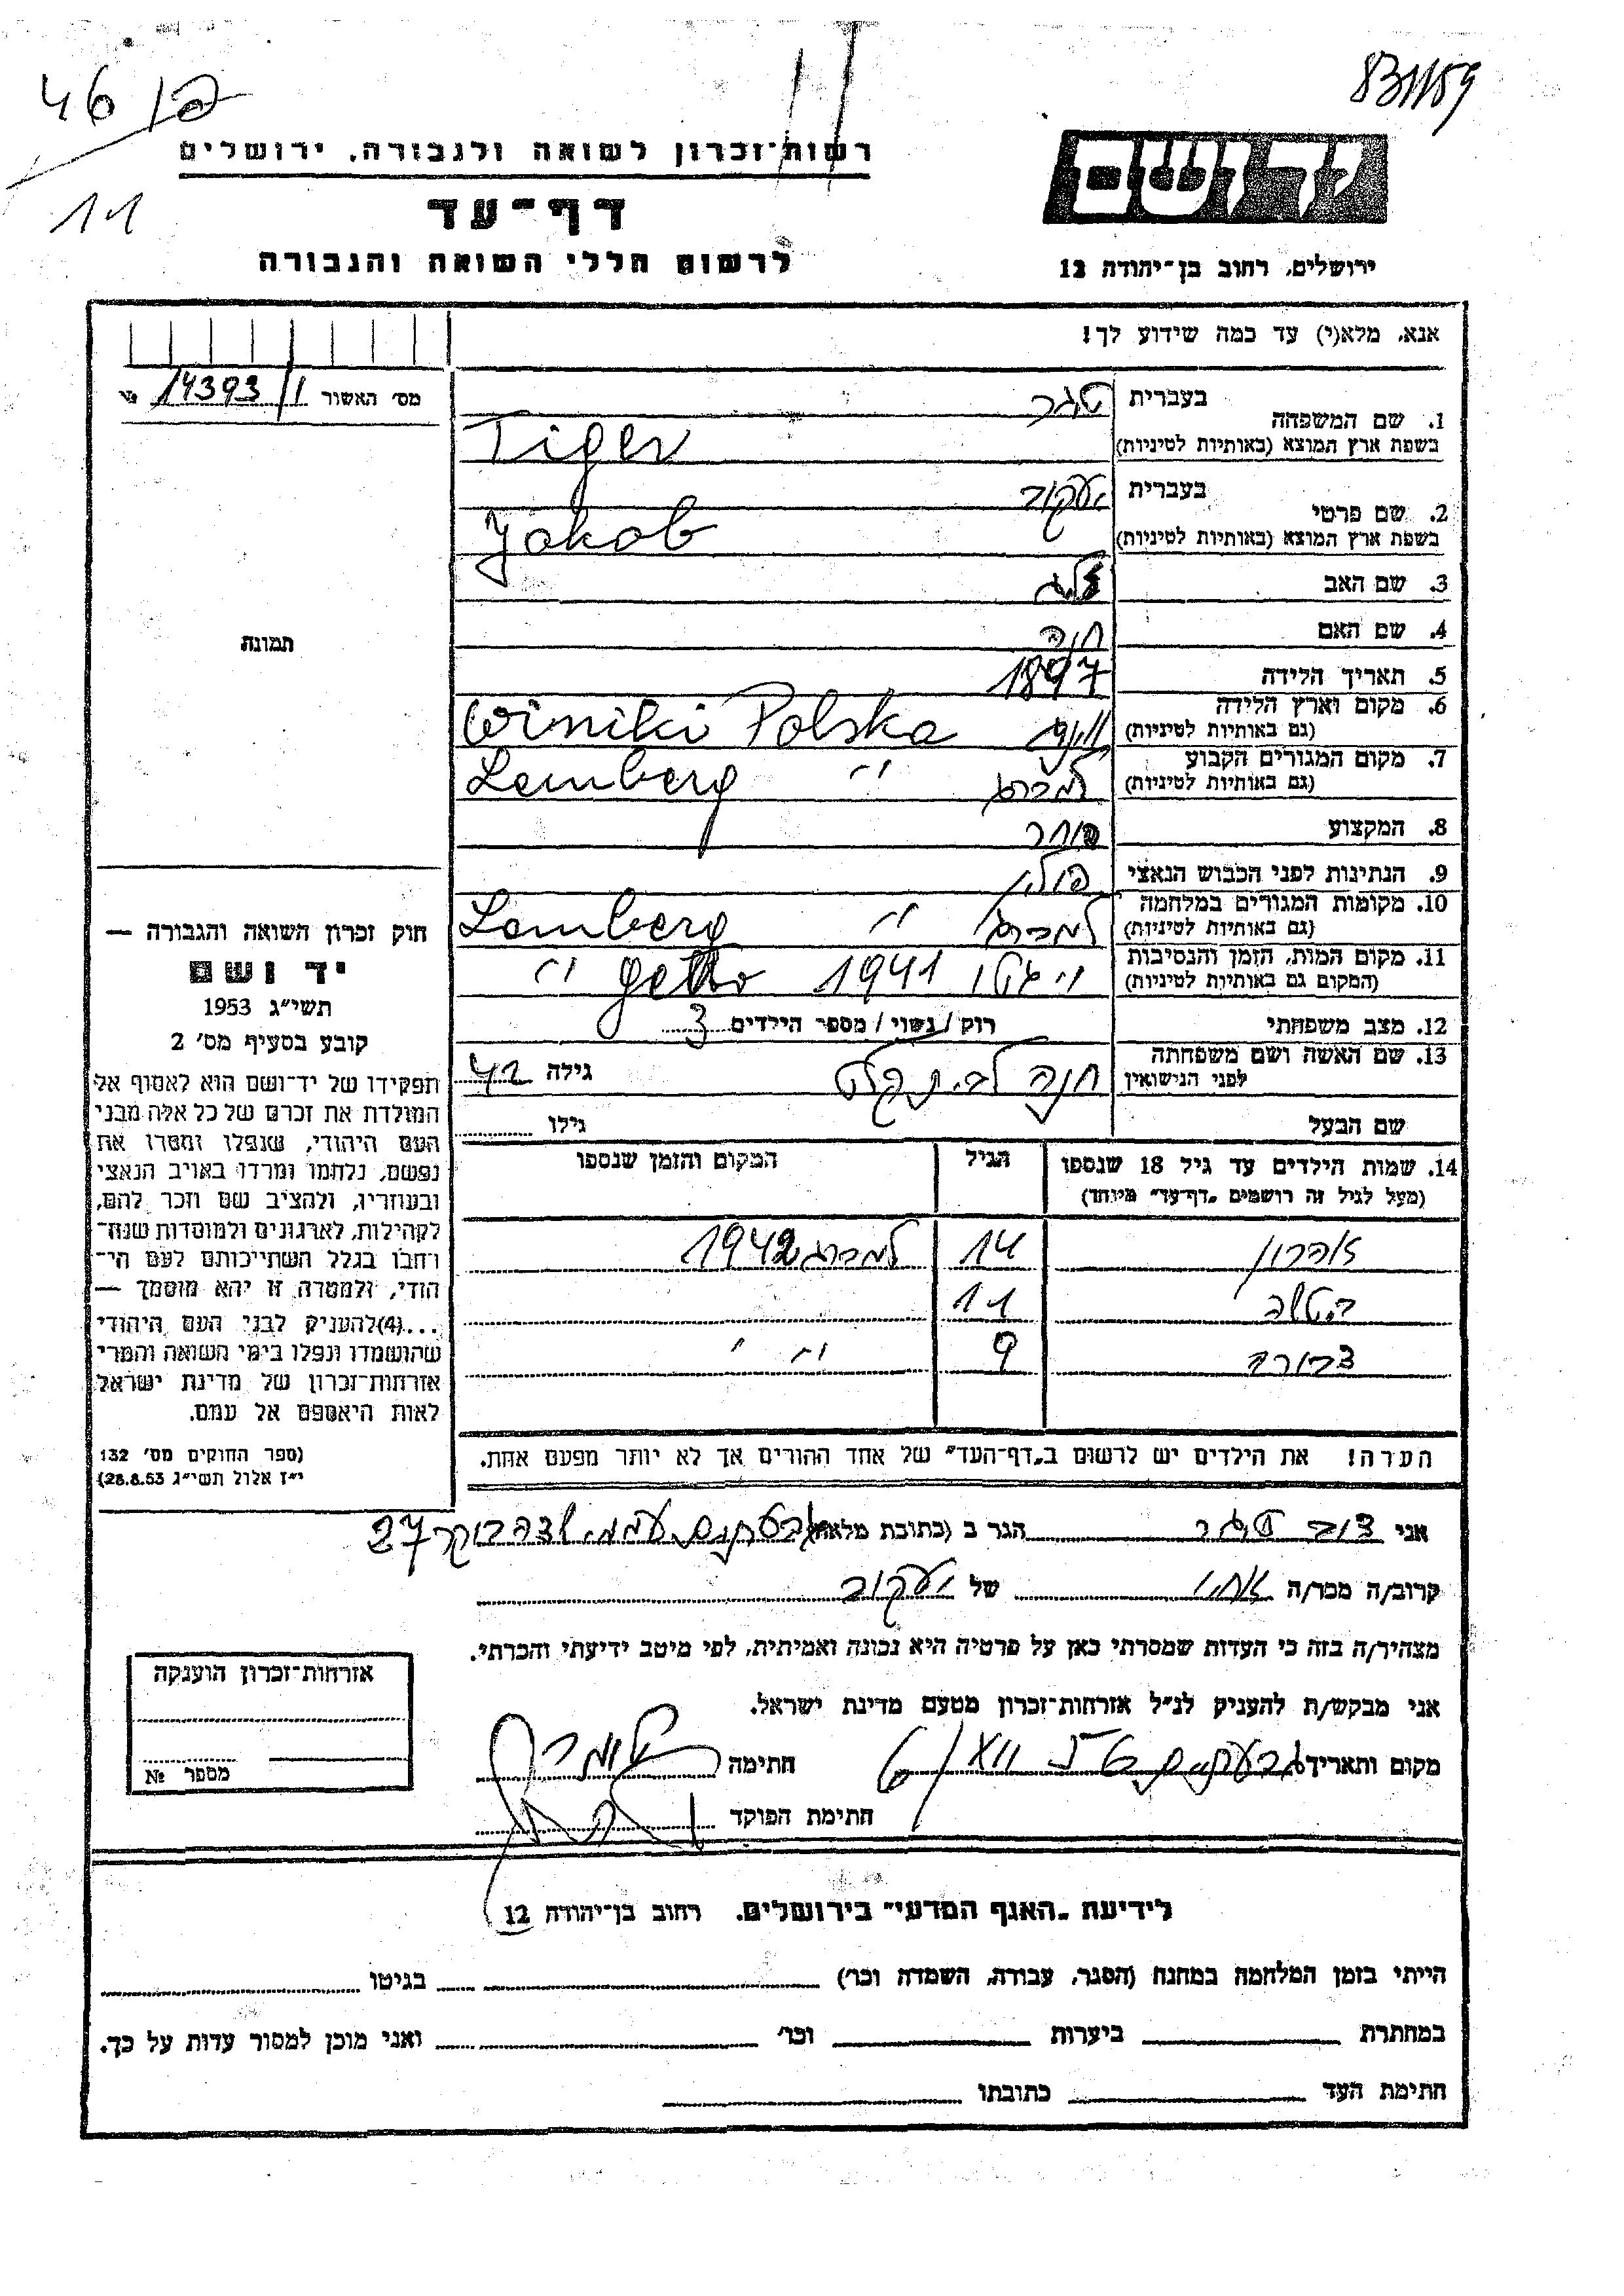 46 12
11
831/159
רשות־זכרון לשואה ולגבורה, ירושלים
דף־עד
לרשום חללי השואה והגבורה
יד ושם
ירושלים, רחוב בן־יהודה 12
אנא, מלא(י) עד כמה שידוע לך!
מס׳ האשור 14393/1 №
1. שם המשפחה
בעברית טיגר
בשפת ארץ המוצא (באותיות לטיניות) Tiger
2. שם פרטי
בעברית יעקוב
בשפת ארץ המוצא (באותיות לטיניות) Jakob
3. שם האב
4. שם האם חוה
5. תאריך הלידה 1897
6. מקום וארץ הלידה
(גם באותיות לטיניות) Winiki Polska
7. מקום המגורים הקבוע
(גם באותיות לטיניות) למברג " Lemberg
8. המקצוע סוחר
9. הנתינות לפני הכבוש הנאצי פולין
10. מקומות המגורים במלחמה
(גם באותיות לטיניות) למברג " Lemberg
11. מקום המות, הזמן והנסיבות
(המקום גם באותיות לטיניות) " גטו 1941 getto "
12. מצב משפחתי רוק/נשוי/מספר הילדים 3
13. שם האשה ושם משפחתה
לפני הנישואין חנה לבית גילה 42
שם הבעל גילו
14. שמות הילדים עד גיל 18 שנספו
(מעל לגיל זה רושמים „דף־עד״ מיוחד)
הגיל
המקום והזמן שנספו
אהרון 14 למברג 1942
11
דבורה 9 " "
הערה! את הילדים יש לרשום ב„דף־העד״ של אחד ההורים אך לא יותר מפעם אחת.
תמונה
חוק זכרון השואה והגבורה —
יד ושם
תשי״ג 1953
קובע בסעיף מס׳ 2
תפקידו של יד־ושם הוא לאסוף אל
המולדת את זכרם של כל אלה מבני
העם היהודי, שנפלו ומסרו את
נפשם, נלחמו ומרדו באויב הנאצי
ובעוזריו, ולהציב שם וזכר להם,
לקהילות, לארגונים ולמוסדות שנח־
רבו בגלל השתייכותם לעם הי־
הודי, ולמטרה זו יהא מוסמך —
...(4)להעניק לבני העם היהודי
שהושמדו ונפלו בימי השואה והמרי
אזרחות־זכרון של מדינת ישראל
לאות היאספם אל עמם.
(ספר החוקים מס׳ 132
י״ז אלול תשי״ג 28.8.53)
אני דוב טיגר הגר ב (כתובת מלאה) גבעתיים 27
קרוב/ה מכר/ה אחיו של יעקוב
מצהיר/ה בזה כי העדות שמסרתי כאן על פרטיה היא נכונה ואמיתית, לפי מיטב ידיעתי והכרתי.
אני מבקש/ת להעניק לנ״ל אזרחות־זכרון מטעם מדינת ישראל.
מקום ותאריך גבעתיים חתימה
חתימת הפוקד
אזרחות־זכרון הוענקה
מספר №
לידיעת „האגף המדעי״ בירושלים, רחוב בן־יהודה 12
הייתי בזמן המלחמה במחנה (הסגר, עבודה, השמדה וכו׳) בגיטו
במחתרת ביערות וכו׳ ואני מוכן למסור עדות על כך.
חתימת העד כתובתו